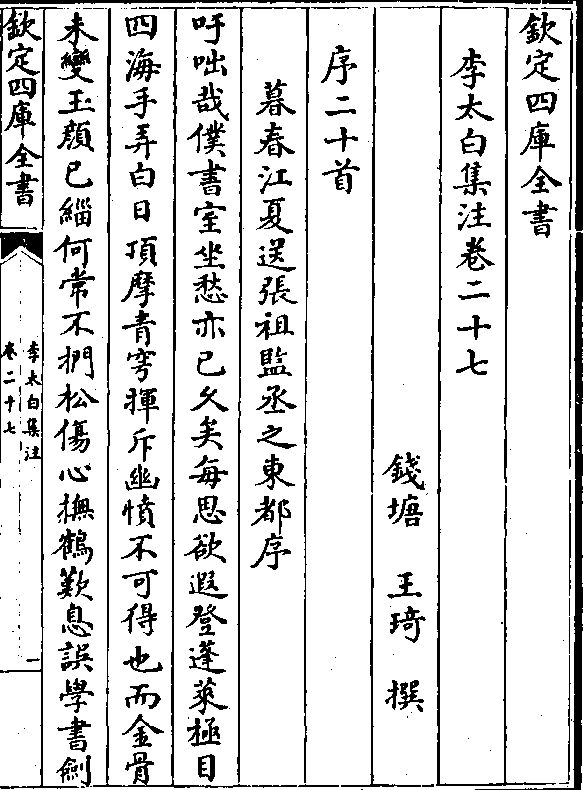 欽定四庫全書
李太白集注卷二十七
錢塘 王琦 撰
序二十首
暮春江夏送張祖監丞之東都序
吁咄哉僕書室坐愁亦已久矣每思欲遐登蓬萊極目
四海手弄白日頂摩青穹揮斥幽憤不可得也而金骨
未變玉顔已緇何常不捫松傷心撫鶴歎息誤學書劍
欽定四庫全書
李太白集注
卷二十七
一